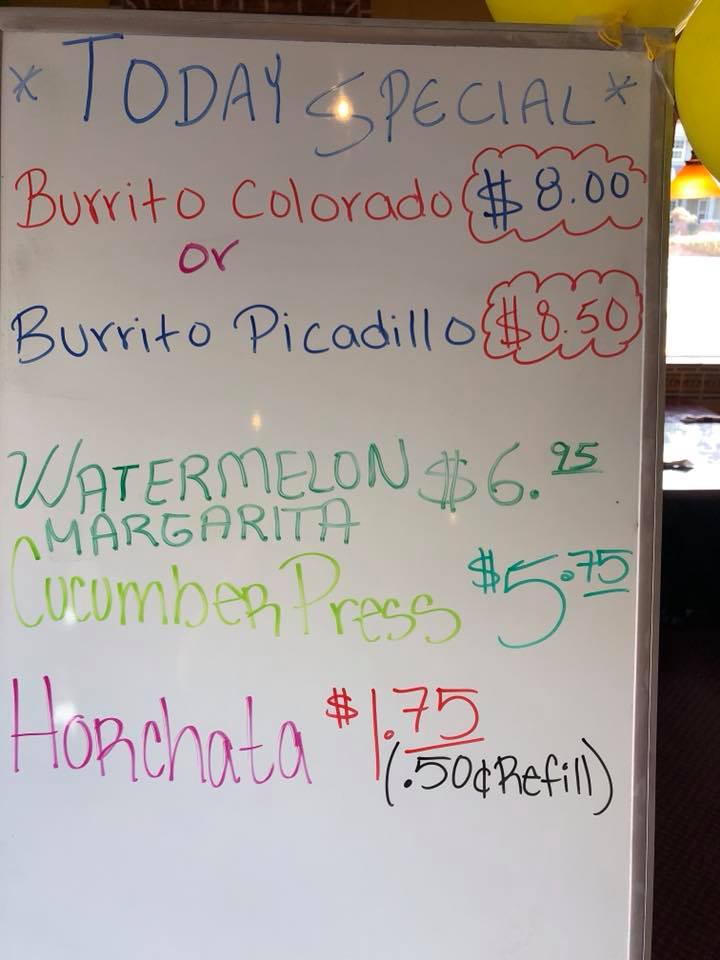 * TODAY SPECIAL *
Burrito Colorado $ 8.00
or
Burrito Picadillo $8.50
WATERMELON $6.95
MARGARITA
Cucumber Press $5.75
Horchata $1.75
(.50¢ Refill)